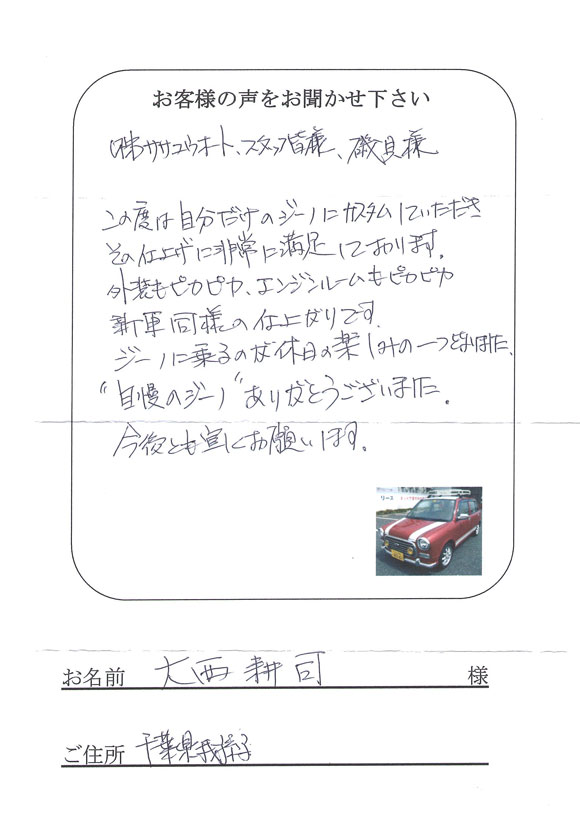 お客様の声をお聞かせ下さい
㈱ササユウオート、スタッフ皆様、磯貝様
この度は自分だけのジーノにカスタムしていただき
その仕上げに非常に満足しております。
外装もピカピカ、エンジンルームもピカピカ
新車同様の仕上がりです。
ジーノに乗るのが休日の楽しみの一つとなりました。
“自慢のジーノ”ありがとうございました。
今後とも宜しくお願いします。
リース
お名前 大西耕司 様
ご住所 千葉県我孫子